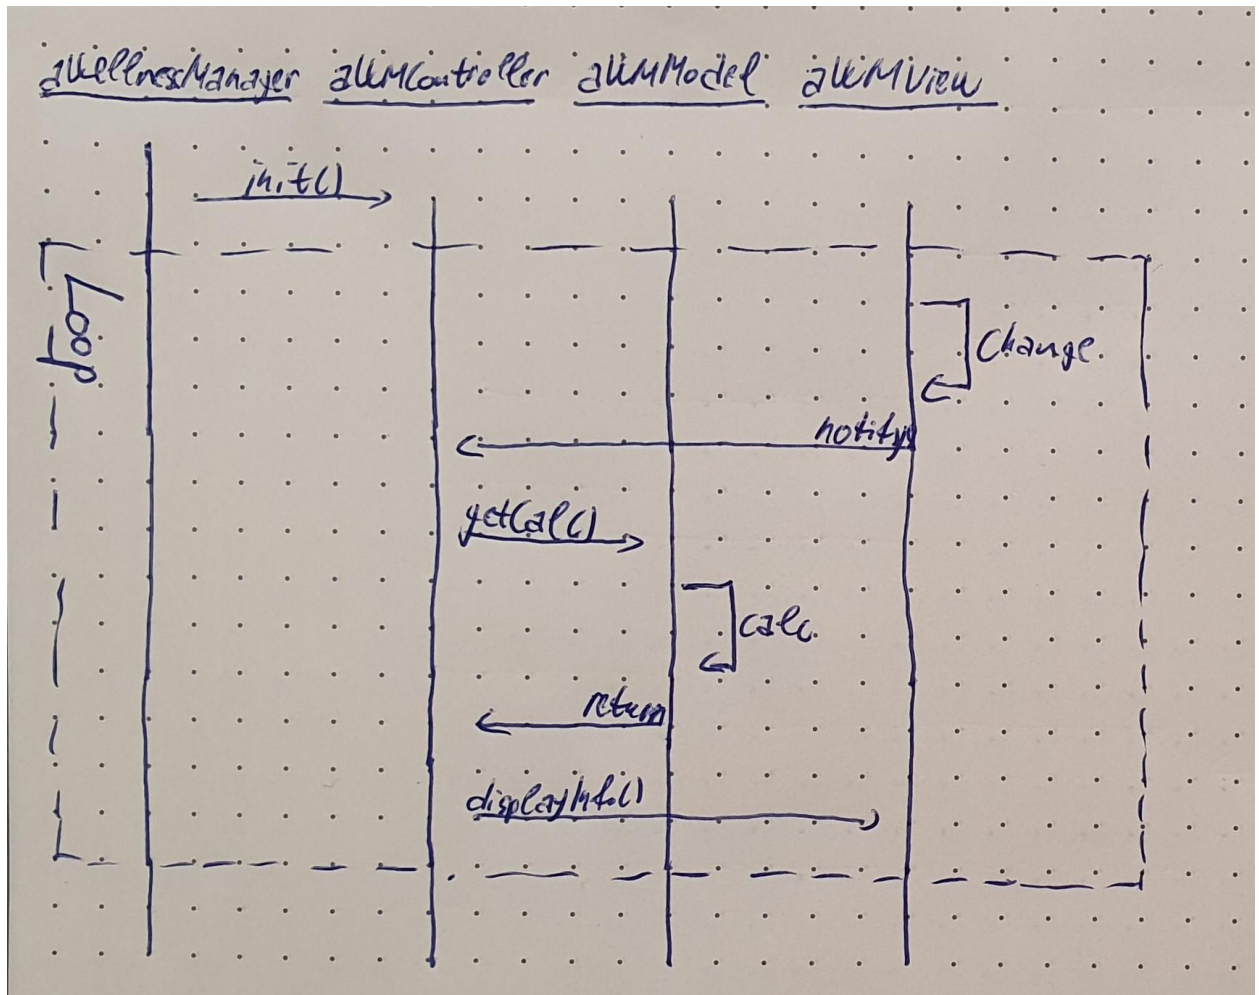 aWellnessManager aWMController aWMModel aWMView
init()
Loop
Change
notify
getCalc()
calc
return
displayInfo()